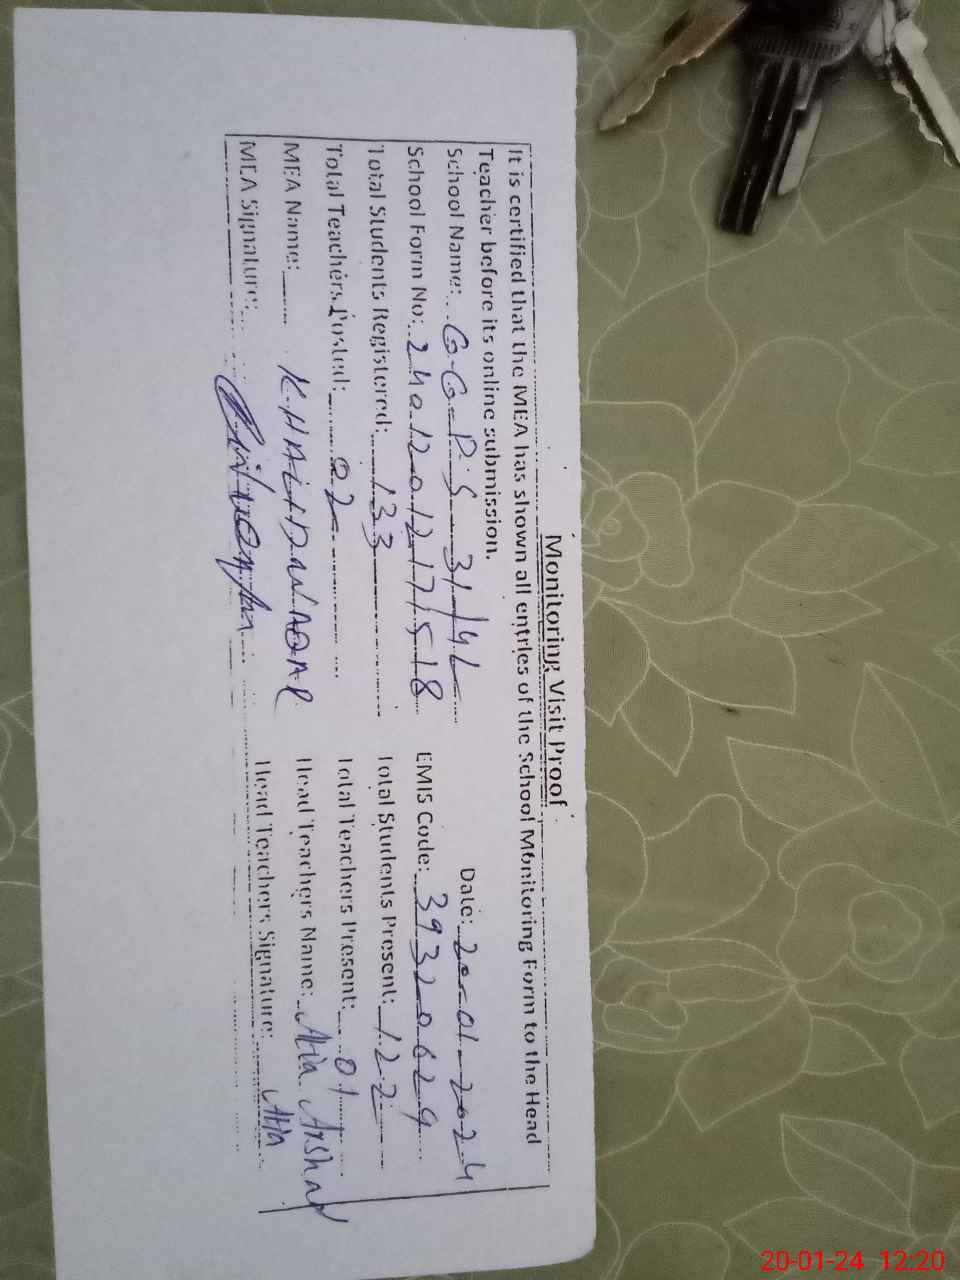 Monitoring Visit Proof
It is certified that the MEA has shown all entries of the School Monitoring Form to the Head
Teacher before its online submission.
School Name: G.G.P.S 31/4L Date: 20-01-2024
School Form No: 240120121717518 EMIS Code: 39320629
Total Students Registered: 133 Total Students Present: 122
Total Teachers Posted: 02 Total Teachers Present: 01
MEA Name: KHALID WAQAR Head Teachers Name: Arshad
MEA Signature: Head Teachers Signature:
20-01-24 12:20